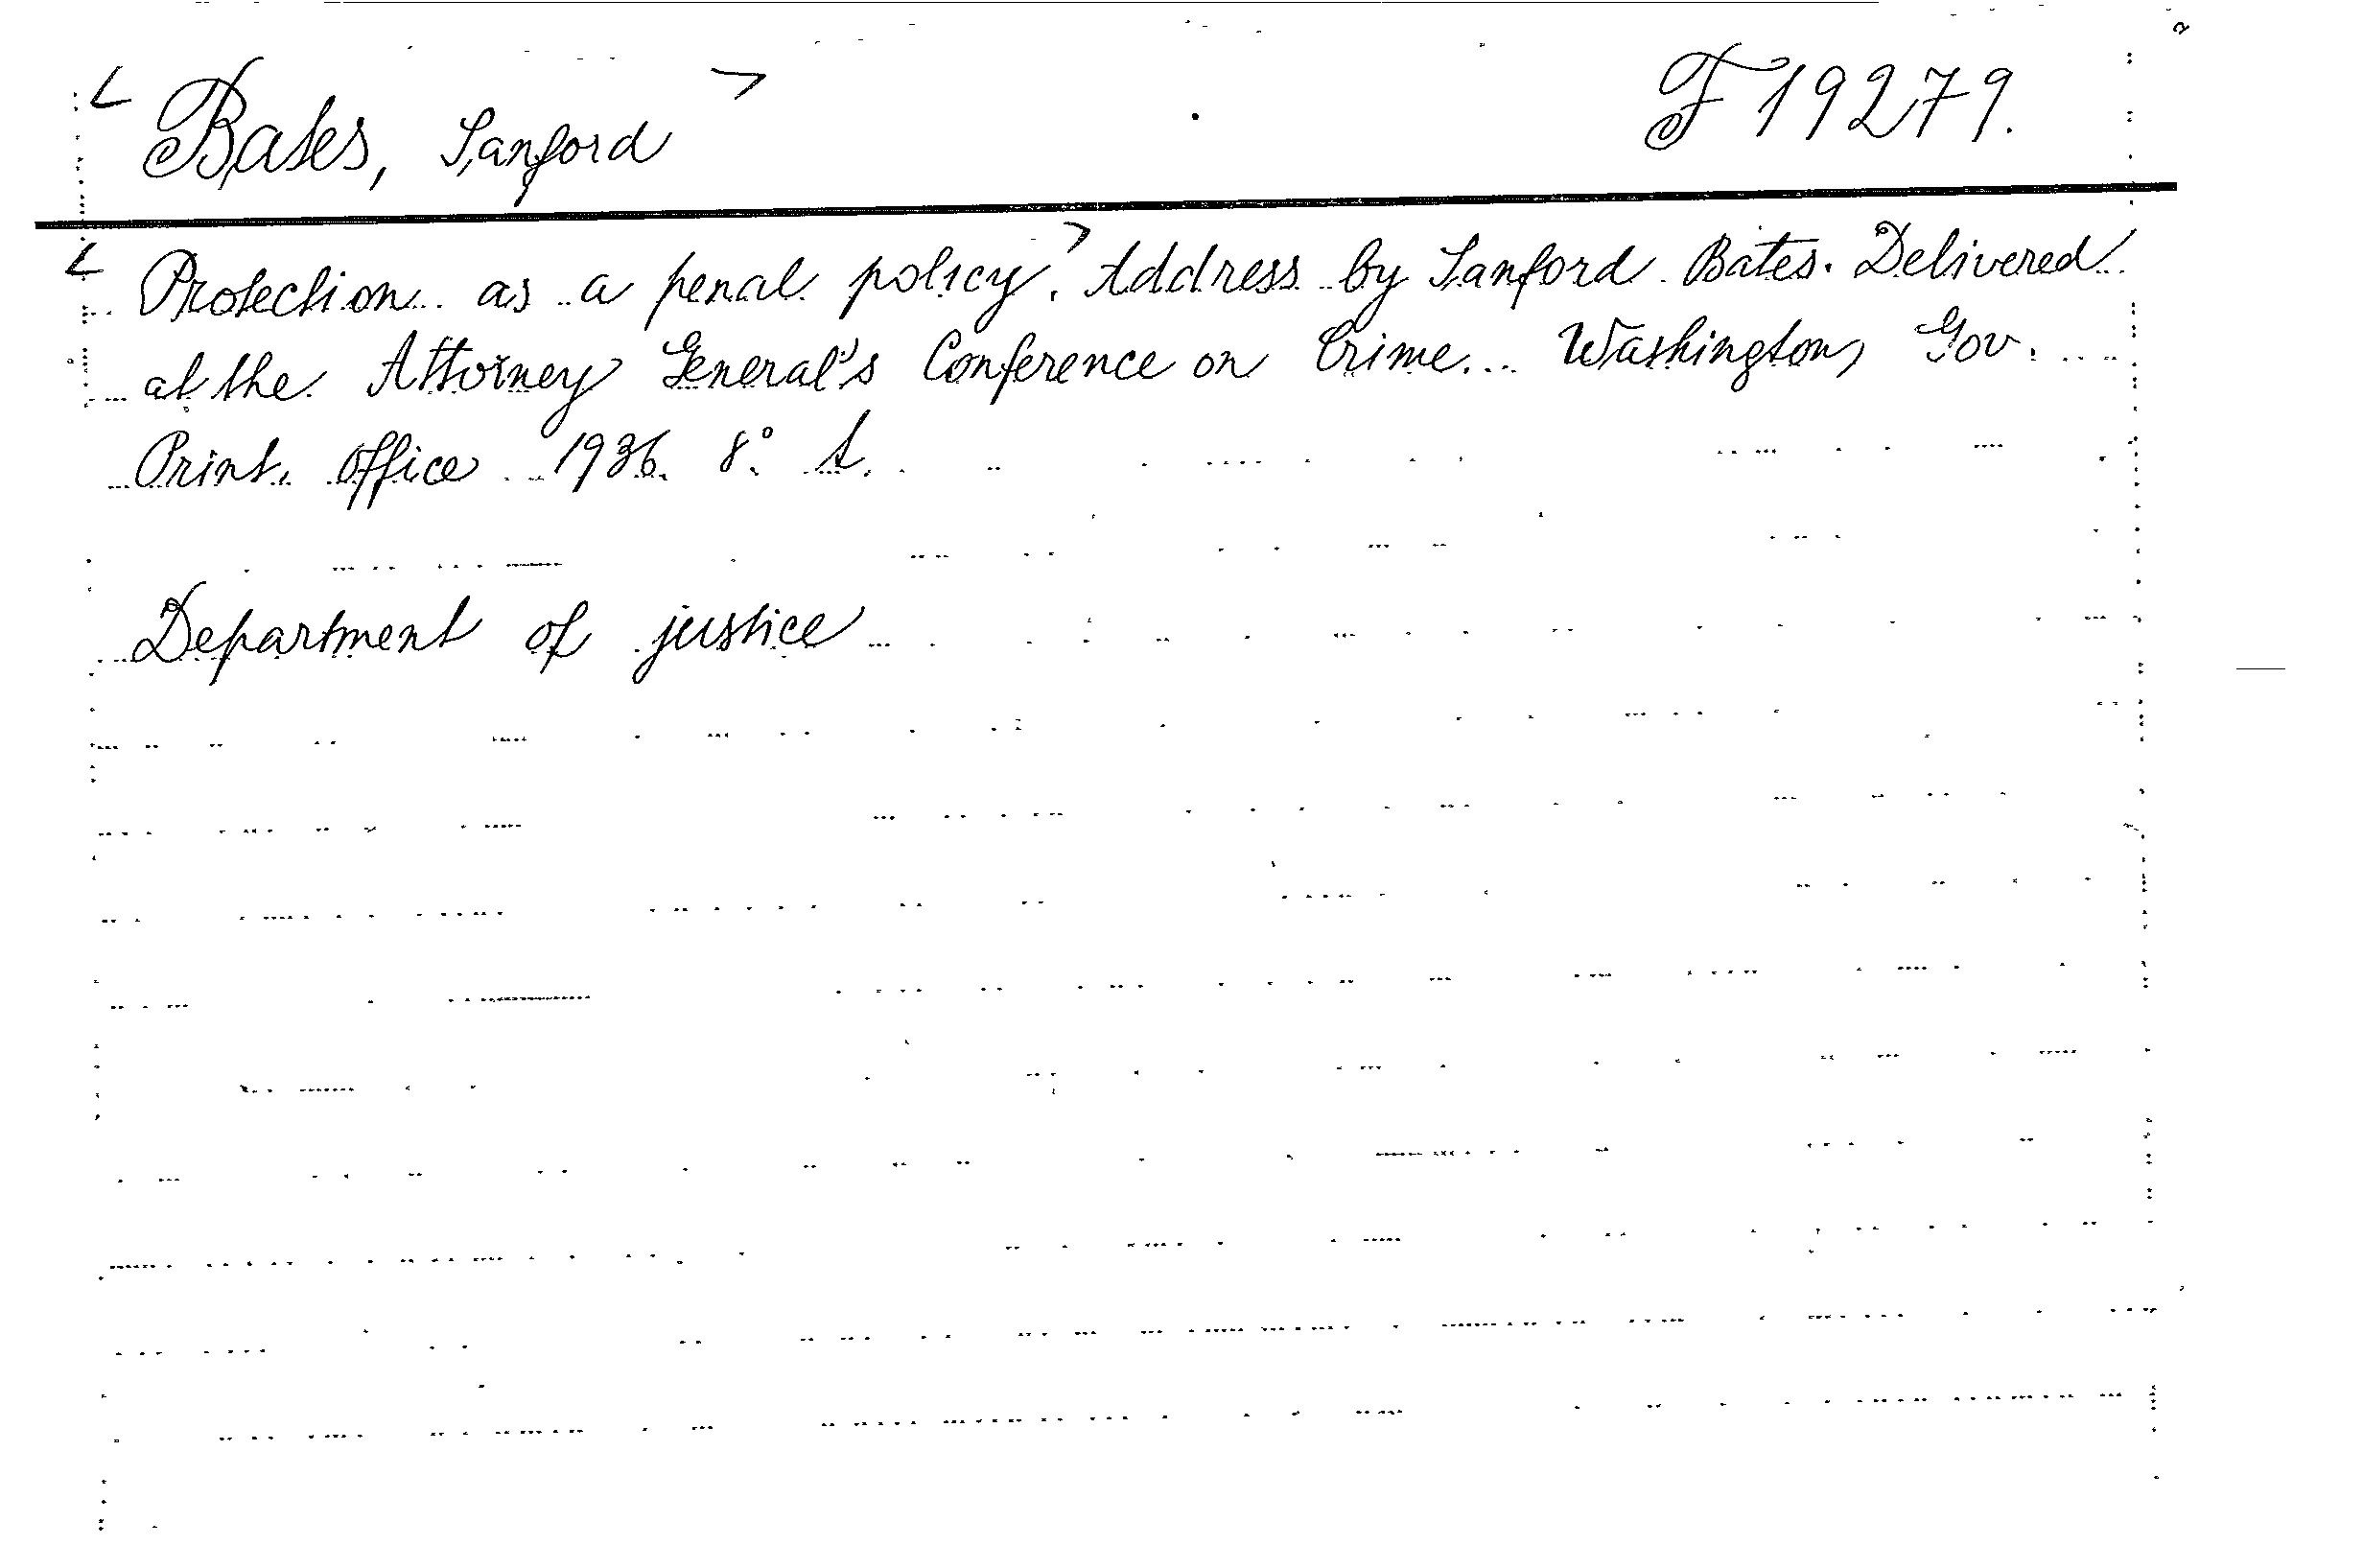 < Bates, Sanford > F 19279.
< Protection as a penal policy. > Address by Sanford Bates. Delivered
at the Attorney General's Conference on Crime. Washington, Gov.
Print. office 1936. 8°
Department of justice